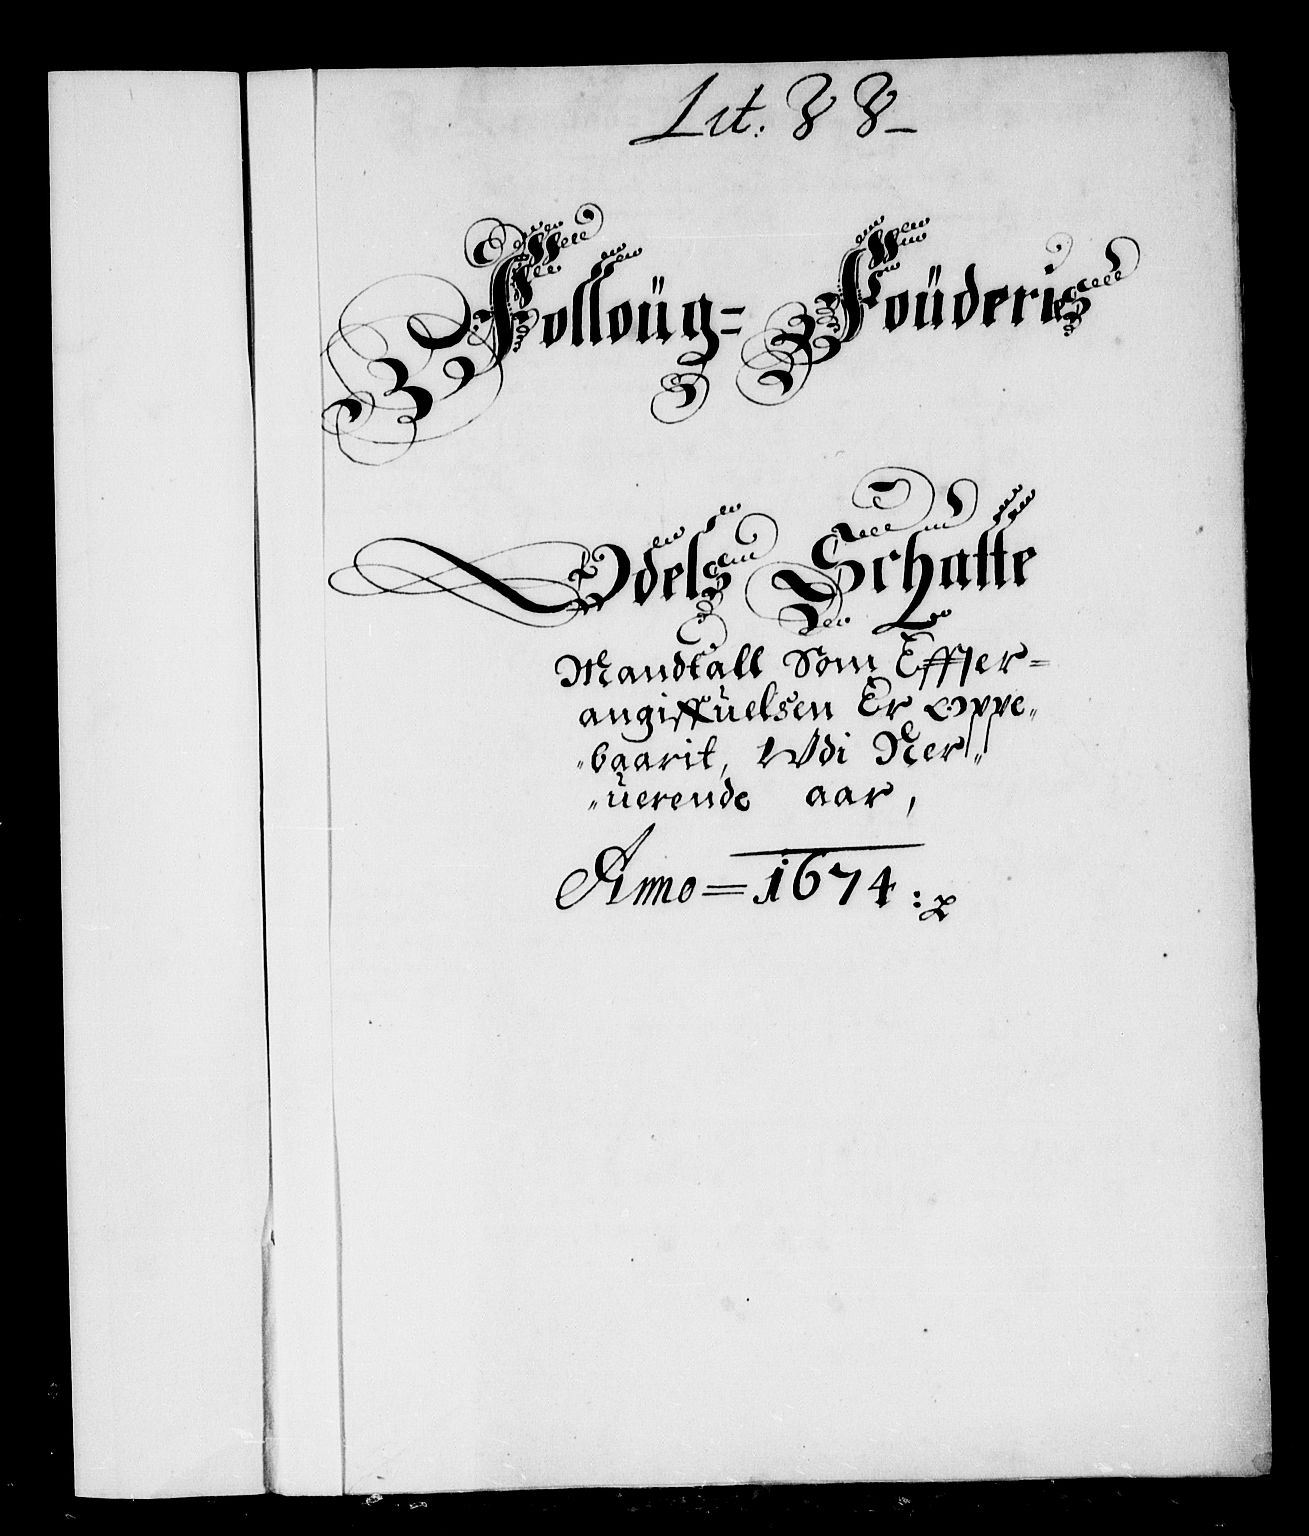 Lit. 8 8
Folloüg= Foüderis
Odels Schatte
Mandtall Som Effter=
angiffüelsen Er Oppe„
„baarit, Udi Ner„
„üerende aar,
Anno = 1674 :